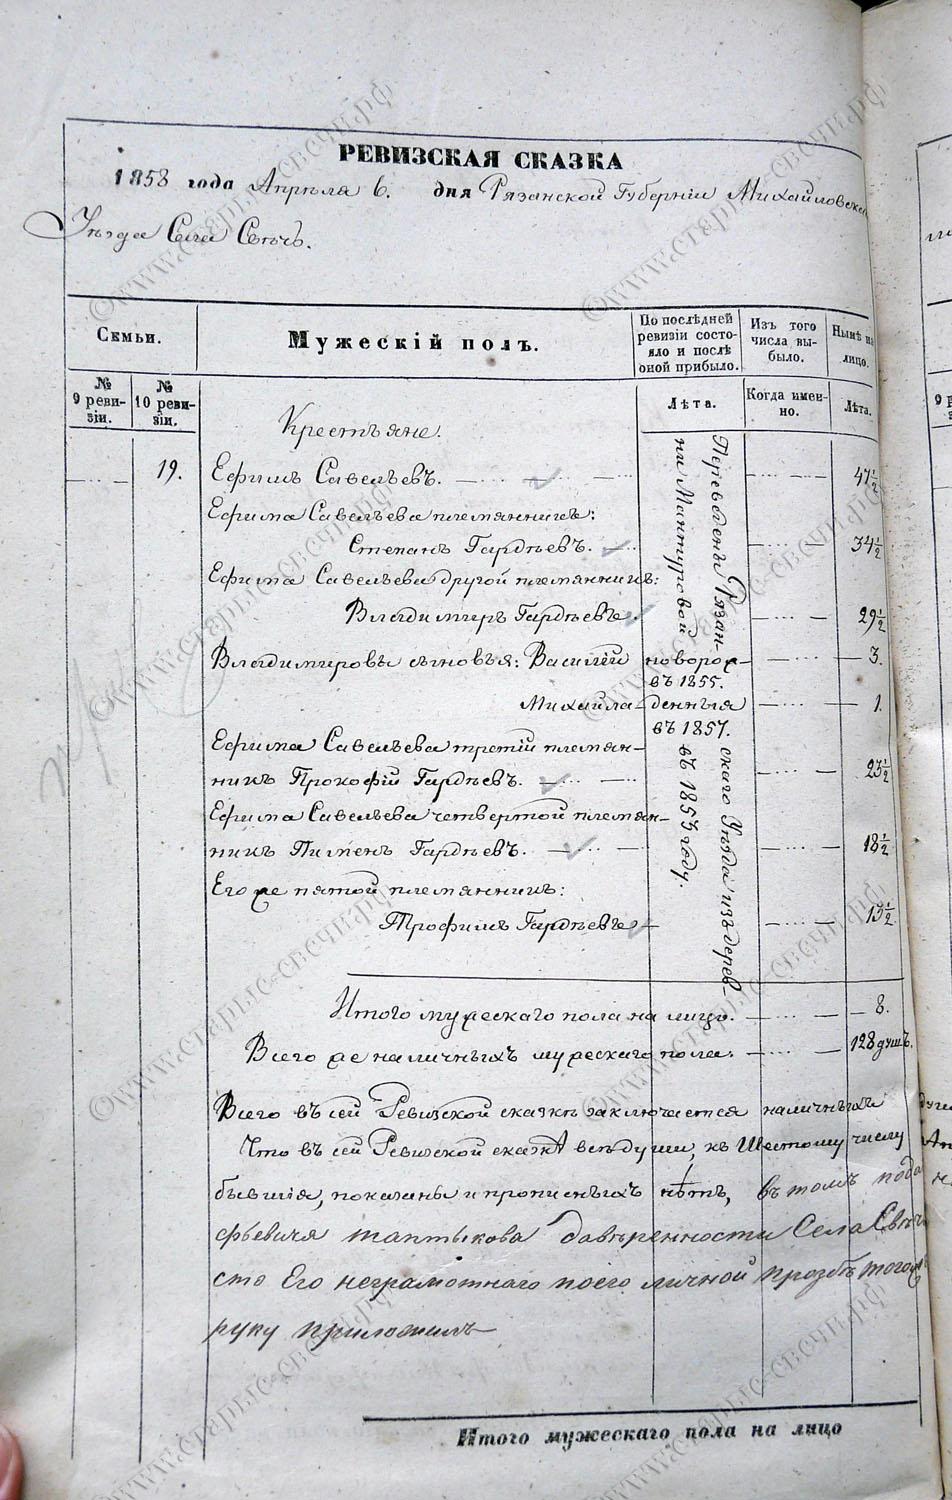 РЕВИЗСКАЯ СКАЗКА
1858 года Апрѣля 6. дня Рязанской Губерніи Михайловска
Уѣзда Села Свѣчь.
Семьи.
Мужескій полъ.
По послѣдней ревизіи состояло и послѣ оной прибыло.
Изъ того числа выбыло.
Нынѣ на лицо.
№ 9 ревизіи.
№ 10 ревизіи.
Лѣта.
Когда именно.
Лѣта.
Крестьяне.
19. Ефимъ Савельевъ. 47½
Ефима Савельева племянникъ:
Степанъ Гардѣевъ. 34½
Ефима Савельева другой племянникъ:
Владимиръ Гардѣевъ. 29½
Владимировы сыновья: Василій новорож- 3.
въ 1855.
Михайла денныя 1.
въ 1857.
Ефима Савельева третій племян-
никъ Прокофій Гардѣевъ. 23½
Ефима Савельева четвертой племян-
никъ Пименъ Гардѣевъ. 18½
Его же пятой племянникъ:
Трофимъ Гардѣевъ 13½
Переведены Рязан- скаго Уѣзда изъ дерев-
ни Мантуровой въ 1853 году.
Итого мужескаго пола на лицо. 8.
Всего же наличныхъ мужескаго пола. 128 душъ.
Всего въ сей Ревизской сказкѣ заключается наличныхъ
Что въ сей Ревизской сказкѣ всѣ души, къ Шестому числу
бывшія, показаны и прописныхъ нѣтъ, въ томъ пода
фьевича таптыкова давѣренности Села Свѣч
сто Его неграмотнаго поего личной прозбѣ тогож
руку приложилъ
Итого мужескаго пола на лицо
©www.старые-свечи.рф